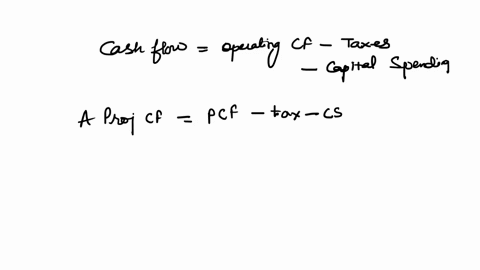 Cash flow = operating CF - Taxes
- Capital Spending
A Proj CF = PCF - tax - CS